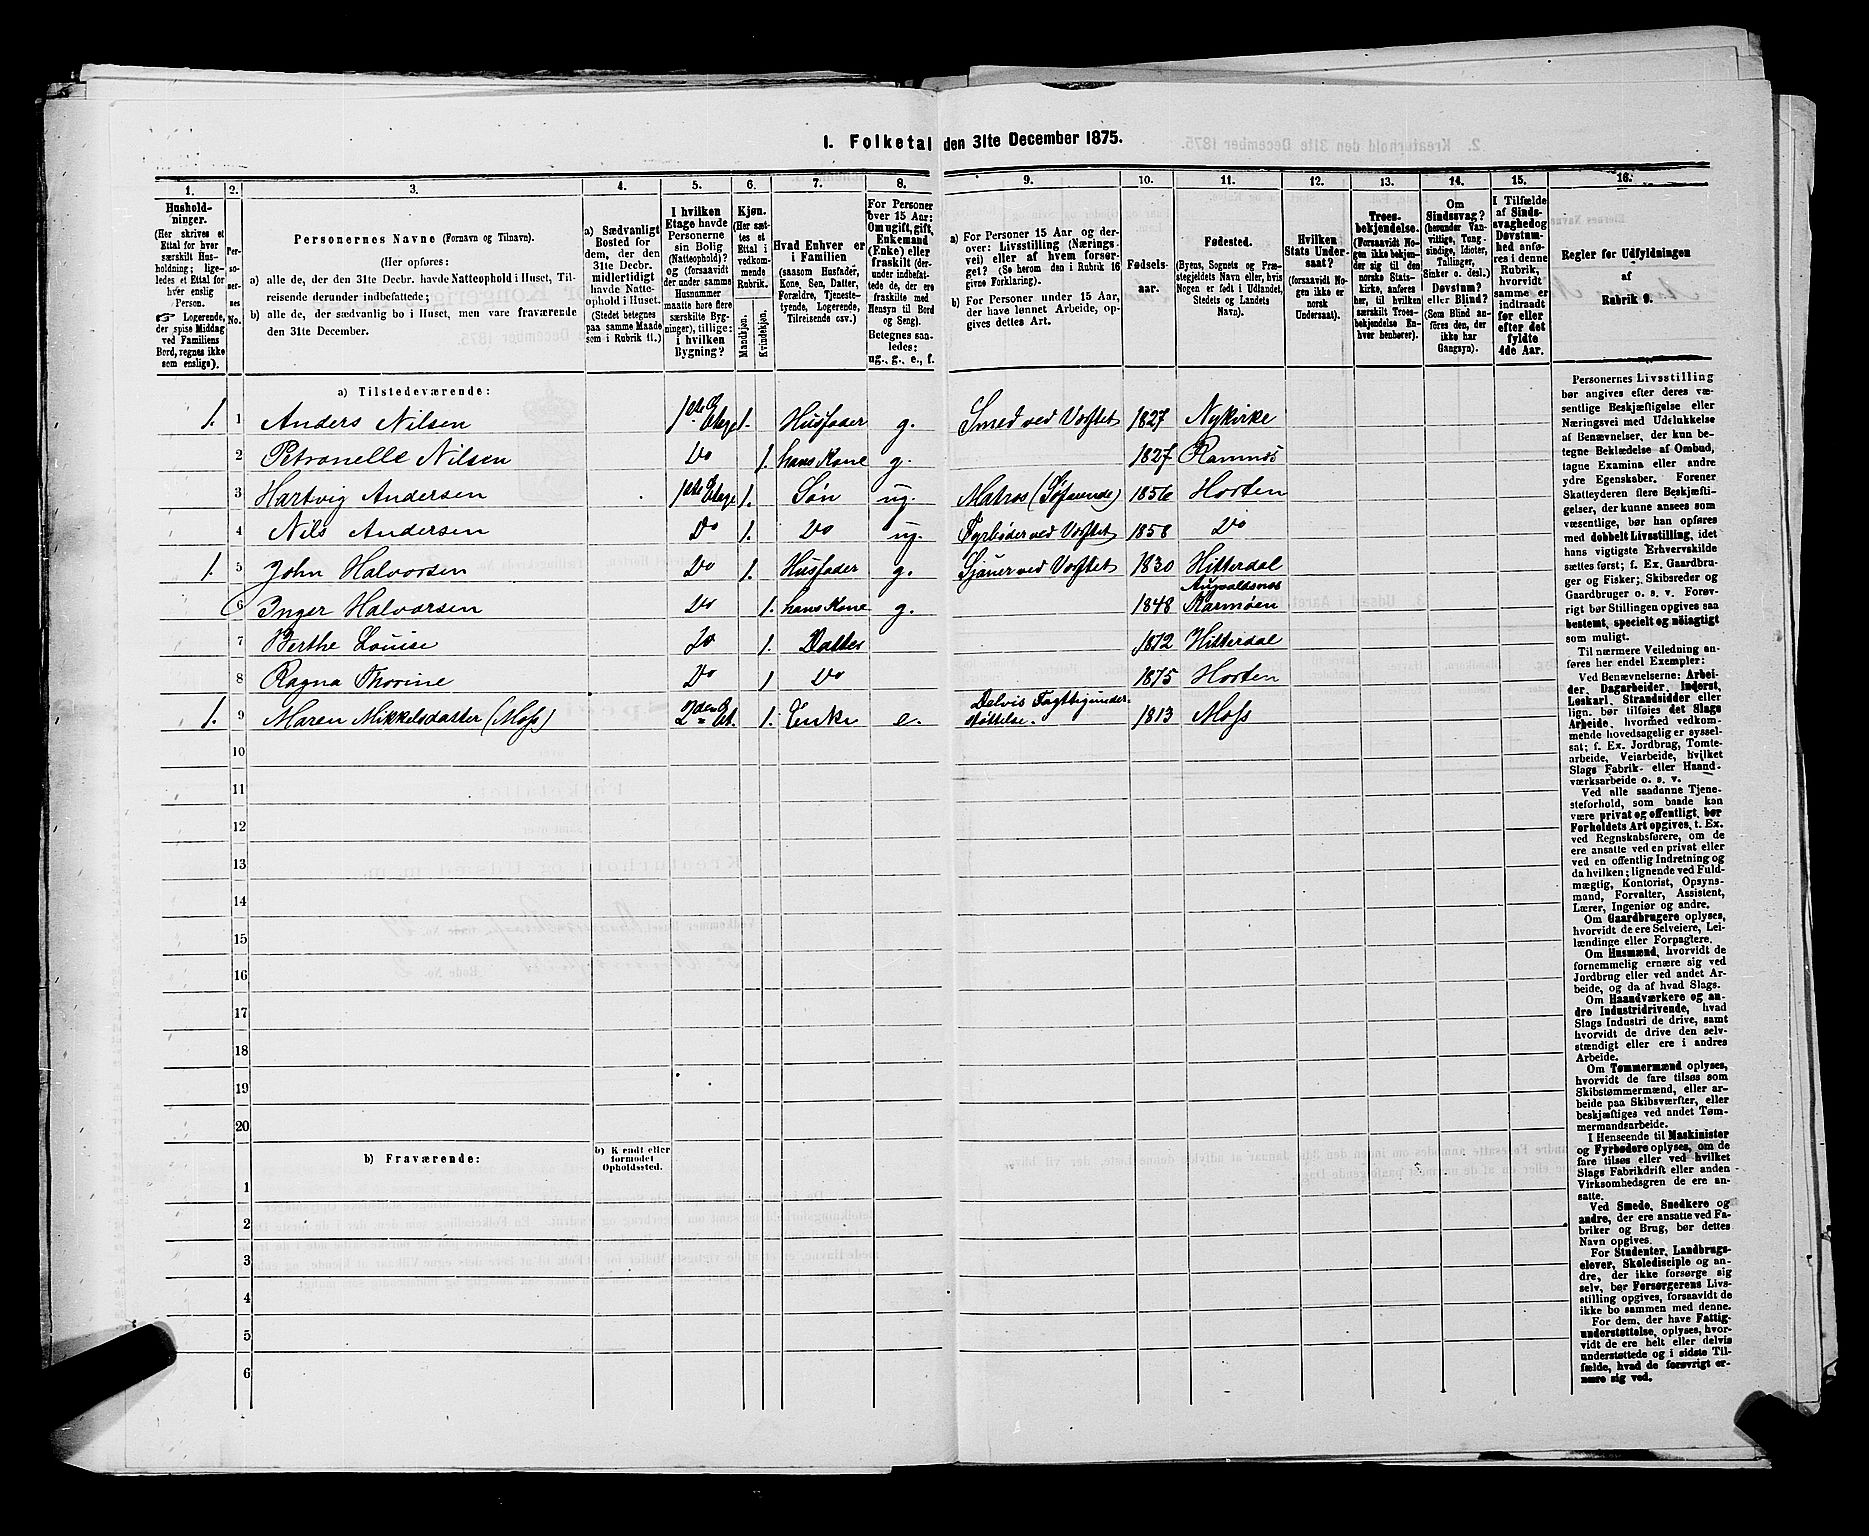 1. Folketal den 31te December 1875.
1. 2. 3. 4. 5. 6. 7. 8. 9. 10. 11. 12. 13. 14. 15. 16.
Hushold-
ninger.
(Her skrives et
Ettal for hver
særskilt Hus-
holdning; lige-
ledes et Ettal for
hver enslig
Person.
☞ Logerende,
der spise Middag
ved Familiens
Bord, regnes ikke
som enslige).
Per-
so-
ner-
nes
No.
Personernes Navne (Fornavn og Tilnavn).
(Her opføres:
a) alle de, der den 31te Decbr. havde Natteophold i Huset, Til-
reisende derunder indbefattede;
b) alle de, der sædvanlig bo i Huset, men vare fraværende
den 31te December.
a) Sædvanligt
Bosted for
dem, der den
31te Decbr.
midlertidigt
havde Natte-
ophold i Huset.
(Stedet betegnes
paa samme Maade
som i Rubrik 11.)
I hvilken
Etage havde
Personerne
sin Bolig
(Natteophold)?
og (forsaavidt
der under samme
Husnummer
maatte høre flere
særskilte Byg-
ninger), tillige:
i hvilken
Bygning?
Kjøn.
(Her sæt-
tes et
Ettal i
vedkom-
mende
Rubrik.
Mandkjøn.
Kvindekjøn.
Hvad Enhver er
i Familien
(saasom Husfader,
Kone, Søn, Datter,
Forældre, Tjeneste-
tyende, Logerende,
Tilreisende osv.)
For Personer
over 15 Aar:
Om ugift, gift,
Enkemand
(Enke) eller
fraskilt (der-
under indbefat-
tede de, der ere
fraskilte med
Hensyn til Bord
og Seng).
Betegnes saa-
ledes:
ug., g., e., f.
a) For Personer 15 Aar og der-
over: Livsstilling (Nærings-
vei) eller af hvem forsør-
get? (Se herom den i Rubrik 16
givne Forklaring).
b) For Personer under 15 Aar,
der have lønnet Arbeide, op-
gives dettes Art.
Fødsels-
aar.
Fødested.
(Byens, Sognets og Præ-
stegjeldets Navn eller, hvis
Nogen er født i Udlandet,
Stedets og Landets
Navn).
Hvilken
Stats Under-
saat?
(forsaavidt No-
gen ikke er
norsk
Undersaat).
Troes-
bekjendelse.
(Forsaavidt No-
gen ikke bekjen-
der sig til den
norske Stats-
kirke, anføres
her, til hvilken
særskilt Troes-
bekjendelse En-
hver henhører).
Om
Sindssvag?
(herunder Van-
vittige, Tung-
sindige, Idioter,
Tullinger,
Sinker o. desl.)
Døvstum?
eller Blind?
(Som Blind an-
føres den, der
ikke har
Gangsyn).
I Tilfælde
af Sinds-
svaghed og
Døvstum-
hed anfø-
res i denne
Rubrik,
hvorvidt
samme er
indtraadt
før eller
efter det
fyldte
4de Aar.
Regler for Udfyldningen
af
Rubrik 9.
a) Tilstedeværende:
1. 1 Anders Nilsen 1ste Etage 1. Husfader g. Smed ved Værftet 1827 Nykirke
2 Petronelle Nilsen Do 1. hans Kone g. 1827 Ramnæs
3 Hartvig Andersen 1ste Etage 1. Søn ug. Matros (Søfarende) 1856 Horten
4 Nils Andersen Do 1. Do ug. Fyrbøder ved Værftet 1858 Do
1. 5 John Halvorsen Do 1. Husfader g. Sjauer ved Værftet 1830 Hitterdal
6 Inger Halvorsen Do 1. hans Kone g. 1848 Augvaldsnes Karmøen
7 Berthe Louise Do 1. Datter 1872 Hitterdal
8 Ragna Thorine Do 1 Do 1875 Horten
1. 9 Maren Mikkelsdatter (Moss) 2den Et. 1. Enke e. Delvis Fattigunder-
støttelse. 1813 Moss
10
11
12
13
14
15
16
17
18
19
20
b) Fraværende:
b) Kjendt eller
formodet
Opholdssted.
1
2
3
4
5
6
Personernes Livsstilling
bør angives efter deres væ-
sentlige Beskjæftigelse eller
Næringsvei med Udelukkelse
af Benævnelser, der kun be-
tegne Beklædelse af Ombud,
tagne Examina eller andre
ydre Egenskaber. Forener
Skatteyderen flere Beskjæfti-
gelser, der kunne ansees som
væsentlige, bør han opføres
med dobbelt Livsstilling, idet
hans vigtigste Erhvervskilde
sættes først; f. Ex. Gaardbru-
ger og Fisker; Skibsreder og
Gaardbruger o. s. v. Forøv-
rigt bør Stillingen opgives saa
bestemt, specielt og nøiagtigt
som muligt.
Til nærmere Veiledning an-
føres her endel Exempler:
Ved Benævnelserne: Arbei-
der, Dagarbeider, Inderst,
Løskarl, Strandsidder eller
lign. bør tilføies det Slags
Arbeide, hvormed vedkom-
mende hovedsagelig er syssel-
sat; f. Ex. Jordbrug, Tomte-
arbeide, Veiarbeide, hvilket
Slags Fabrik- eller Haand-
værksarbeide o. s. v.
Ved alle saadanne Tjene-
steforhold, som baade kan
være privat og offentligt, bør
Forholdets Art opgives, t. Ex.
ved Regnskabsførere, om de
ere ansatte ved en privat eller
ved en offentlig Indretning og
da hvilken; lignende ved Fuld-
mægtig, Kontorist, Opsyns-
mand, Forvalter, Assistent,
Lærer, Ingeniør og andre.
Om Gaardbrugere oplyses,
hvorvidt de ere Selveiere, Lei-
lændinge eller Forpagtere.
Om Husmænd, hvorvidt de
fornemmelig ernære sig ved
Jordbrug eller ved andet Ar-
beide, og da af hvad Slags.
Om Haandværkere og an-
dre Industridrivende, hvad
Slags Industri de drive, samt
hvorvidt de drive den selv-
stændigt eller ere i andres
Arbeide.
Om Tømmermænd oplyses,
hvorvidt de fare tilsøs som
Skibstømmermænd, eller ar-
beide paa Skibsværfter, eller
beskjæftiges ved andet Tøm-
mermandsarbeide.
I Henseende til Maskinister
og Fyrbødere oplyses, om de
fare tilsøs eller ved hvilket
Slags Fabrikdrift eller anden
Virksomhedsgren de ere an-
satte.
Ved Smede, Snedkere og
andre, der ere ansatte ved Fa-
briker og Brug, bør dettes
Navn opgives.
For Studenter, Landbrugs-
elever, Skoledisciple og an-
dre, der ikke forsørge sig
selv, bør Forsørgerens Livs-
stilling opgives, forsaavidt de
ikke bo sammen med denne.
For dem, der have Fattig-
understøttelse, oplyses, hvor-
vidt de ere helt eller delvis
understøttede og i sidste Til-
fælde, hvad de forøvrigt er-
nære sig ved.